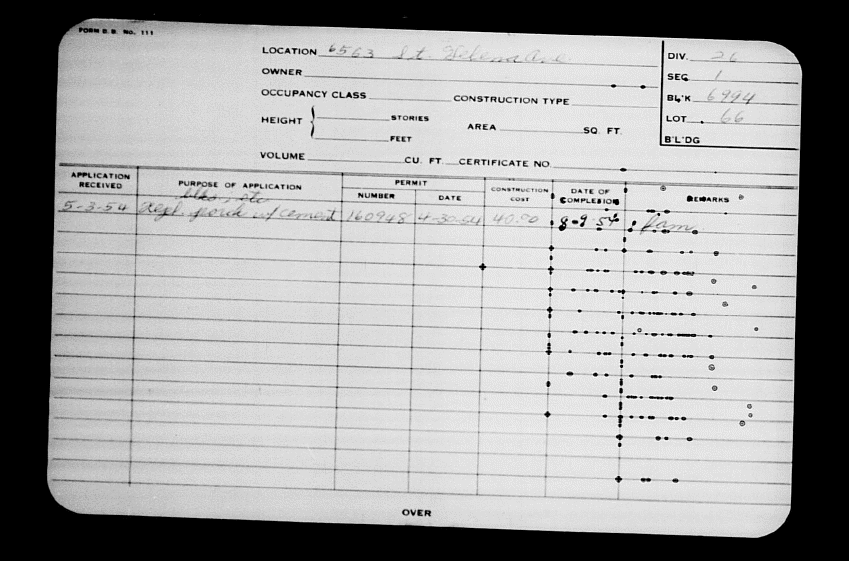 FORM B.B. No. 111
LOCATION 6563 St. Helena Ave.
OWNER
OCCUPANCY CLASS CONSTRUCTION TYPE
HEIGHT STORIES
FEET
AREA SQ. FT.
VOLUME CU. FT. CERTIFICATE NO.
DIV. 26
SEC 1
BL'K 6994
LOT 66
B'L'DG
APPLICATION RECEIVED PURPOSE OF APPLICATION PERMIT NUMBER DATE CONSTRUCTION COST DATE OF COMPLETION REMARKS
blks, etc
5-3-54 Repl. porch w/cement 160948 4-30-54 40.00 8-9-54
OVER